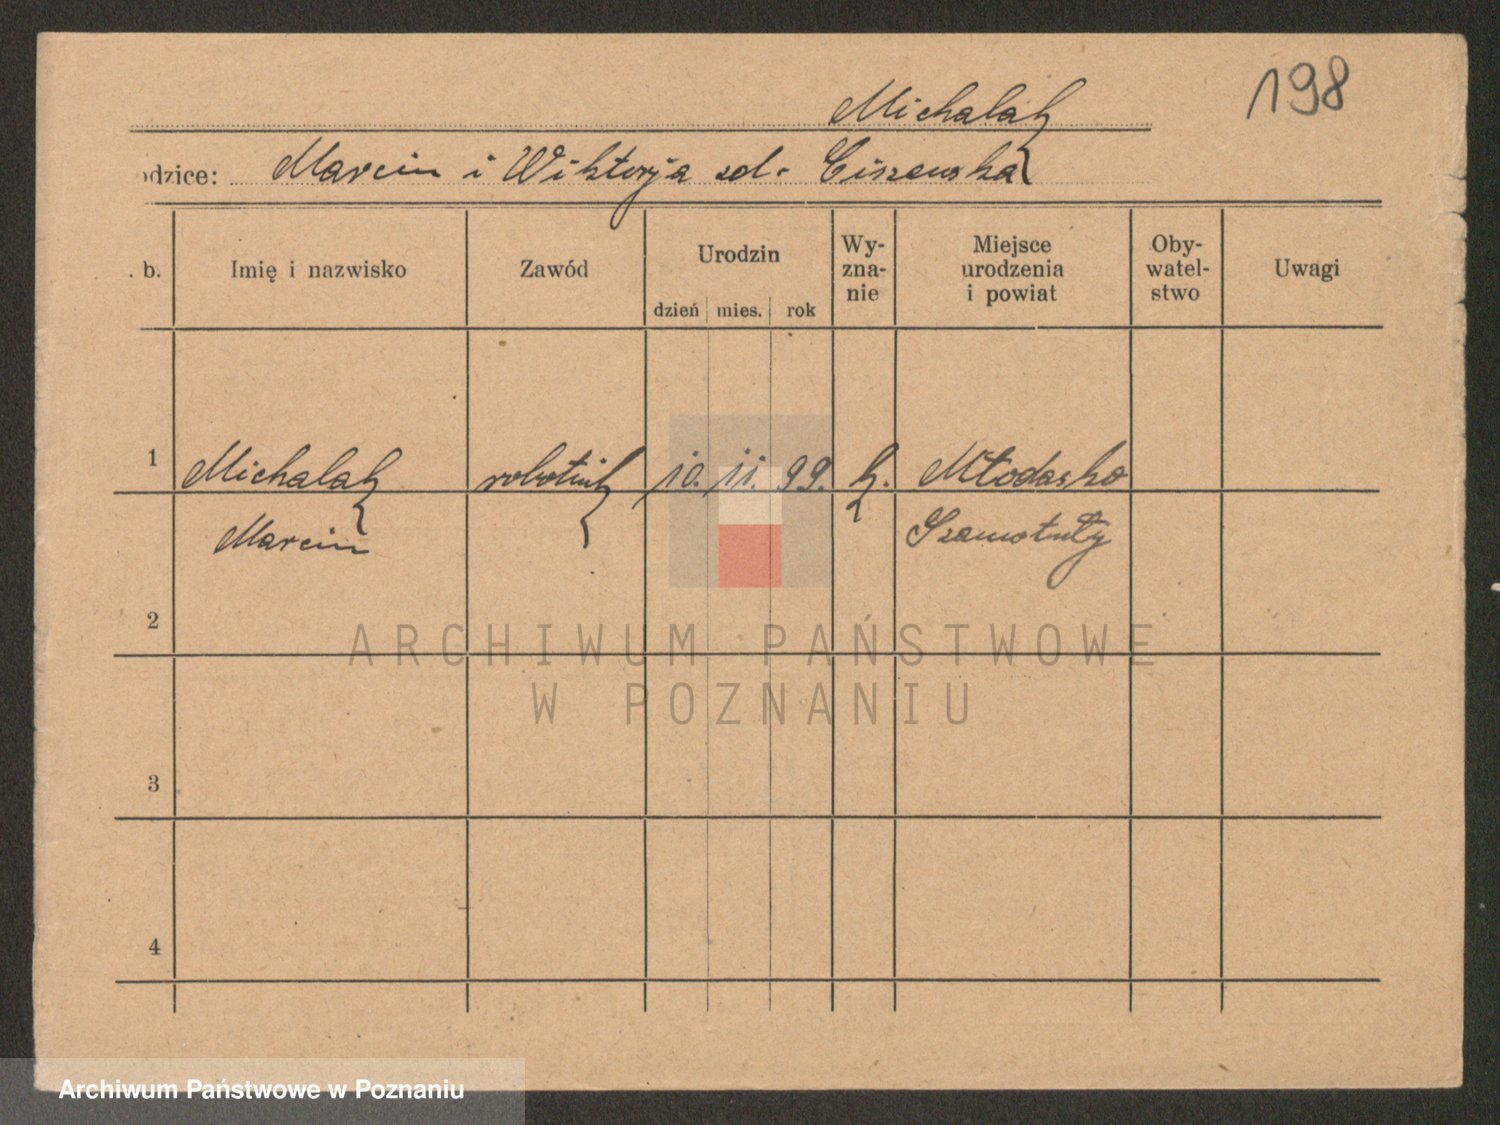 198
Michalak
odzice: Marcin i Wiktorja zd. Ciszewska
. b. Imię i nazwisko Zawód Urodzin dzień mies. rok Wy-zna-nie Miejsce urodzenia i powiat Oby-watel-stwo Uwagi
1 Michalak robotnik 10. 11. 99. k. Młodasko
Marcin Szamotuły
2
ARCHIWUM PAŃSTWOWE
W POZNANIU
3
4
Archiwum Państwowe w Poznaniu